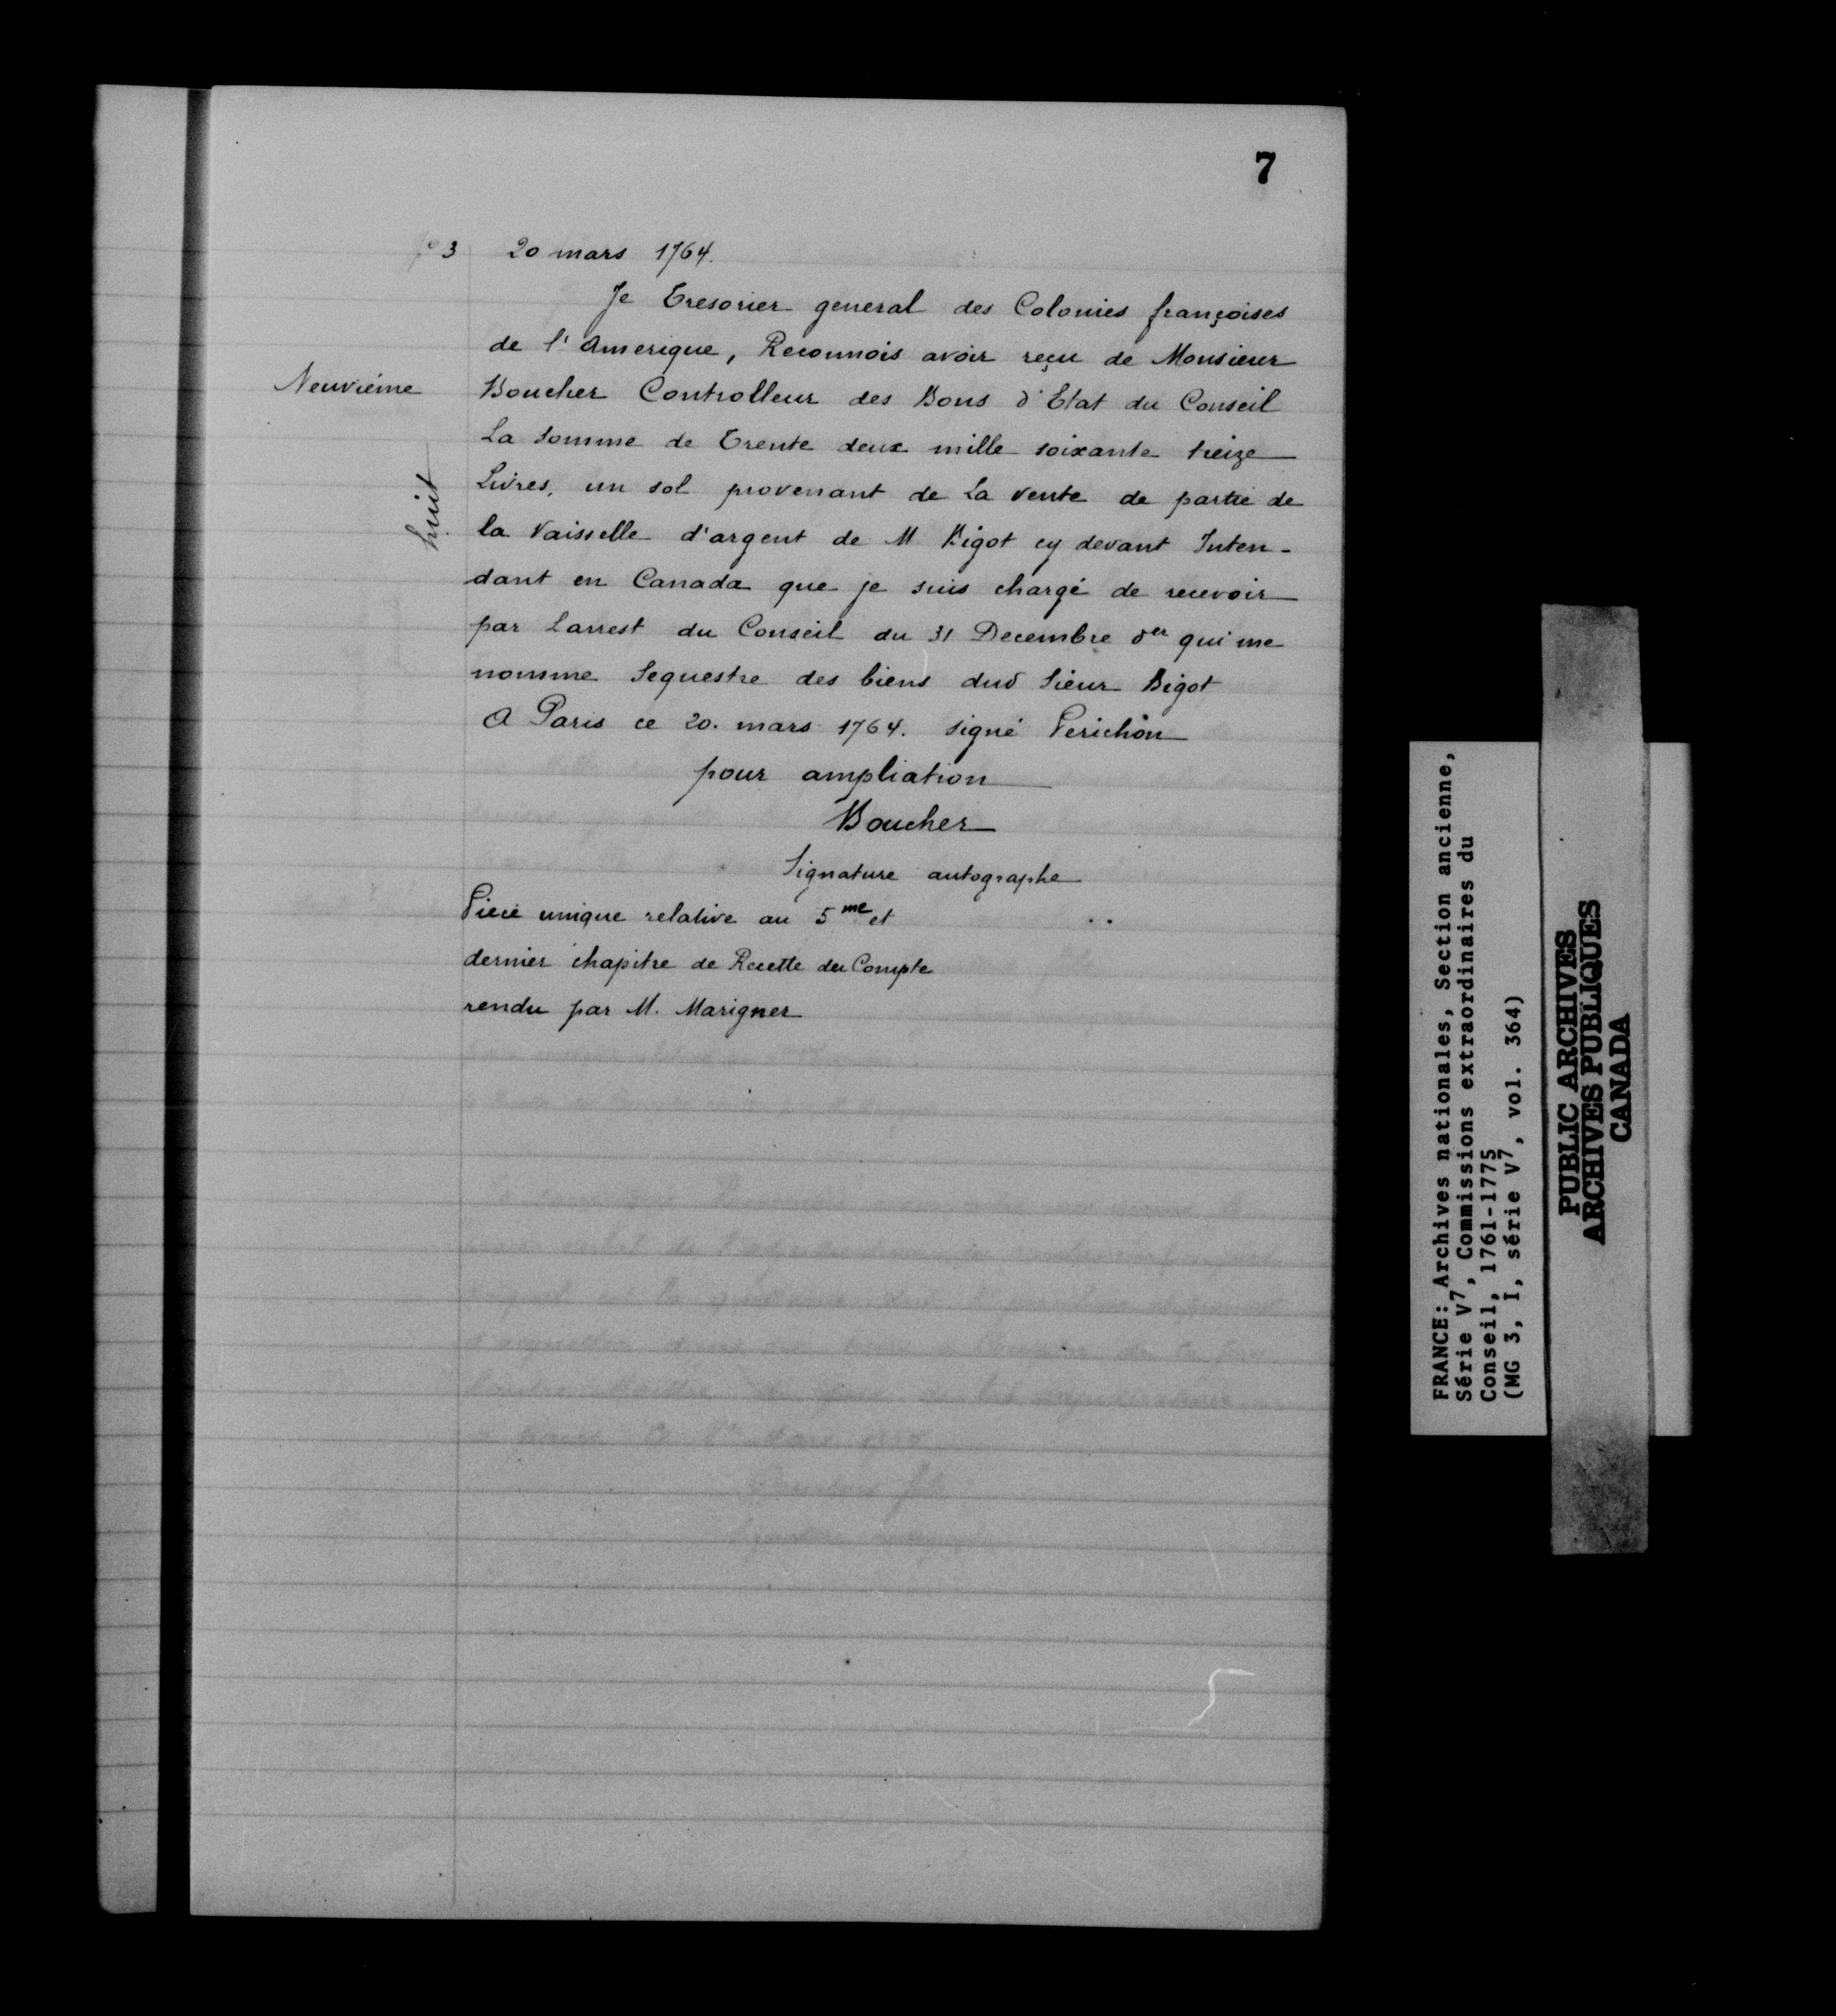 7
fo 3 20 mars 1764.
Je Tresorier general des Colonies françoises
de l'Amerique, Reconnois avoir reçu de Monsieur
Neuviéme
Boucher Controlleur des Bons d'Etat du Conseil
La Somme de Trente deux mille soixante treize
huit
Livres, un sol provenant de La vente de partie de
la Vaisselle d'argent de M Bigot cy devant Inten-
dant en Canada que je suis chargé de recevoir
par Larrest du Conseil du 31 Decembre der qui me
nomme Sequestre des biens dud Sieur Bigot
A Paris ce 20. mars 1764. signé Perichon
pour ampliation
Boucher
Signature autographe
Piece unique relative au 5me et
dernier chapitre de Recette du Compte
rendu par M. Marigner
FRANCE: Archives nationales, Section ancienne,
Série V7, Commissions extraordinaires du
Conseil, 1761-1775
(MG 3, I, série V7, vol. 364)
PUBLIC ARCHIVES
ARCHIVES PUBLIQUES
CANADA